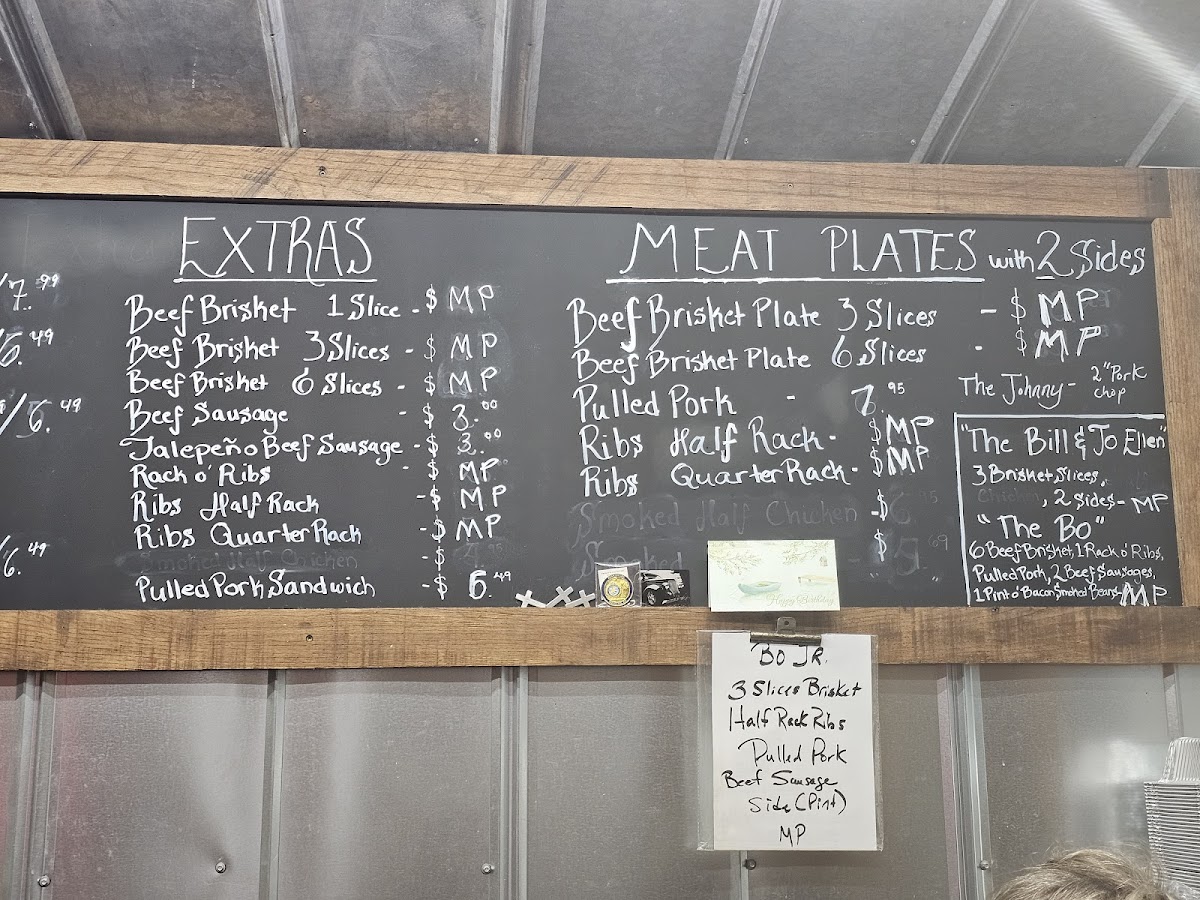 /7.99
6.49
/6.49
/6.49
EXTRAS
Beef Brisket 1 Slice - $ MP
Beef Brisket 3 Slices - $ MP
Beef Brisket 6 Slices - $ MP
Beef Sausage - $ 3.00
Jalepeño Beef Sausage - $ 3.00
Rack o' Ribs - $ MP
Ribs Half Rack - $ MP
Ribs Quarter Rack - $ MP
Smoked Half Chicken - $
Pulled Pork Sandwich - $ 6.49
MEAT PLATES with 2 Sides
Beef Brisket Plate 3 Slices - $ MP
Beef Brisket Plate 6 Slices - $ MP
Pulled Pork - 7.95
Ribs Half Rack - $ MP
Ribs Quarter Rack - $ MP
Smoked Half Chicken - $
Smoked $
The Johnny - 2" Pork
chop
"The Bill & Jo Ellen"
3 Brisket Slices,
Chicken, 2 Sides - MP
"The Bo"
6 Beef Brisket, 1 Rack o' Ribs,
Pulled Pork, 2 Beef Sausages,
1 Pint o' Bacon Smoked Beans - MP
Happy Birthday
Bo JR.
3 Slices Brisket
Half Rack Ribs
Pulled Pork
Beef Sausage
Side (Pint)
MP